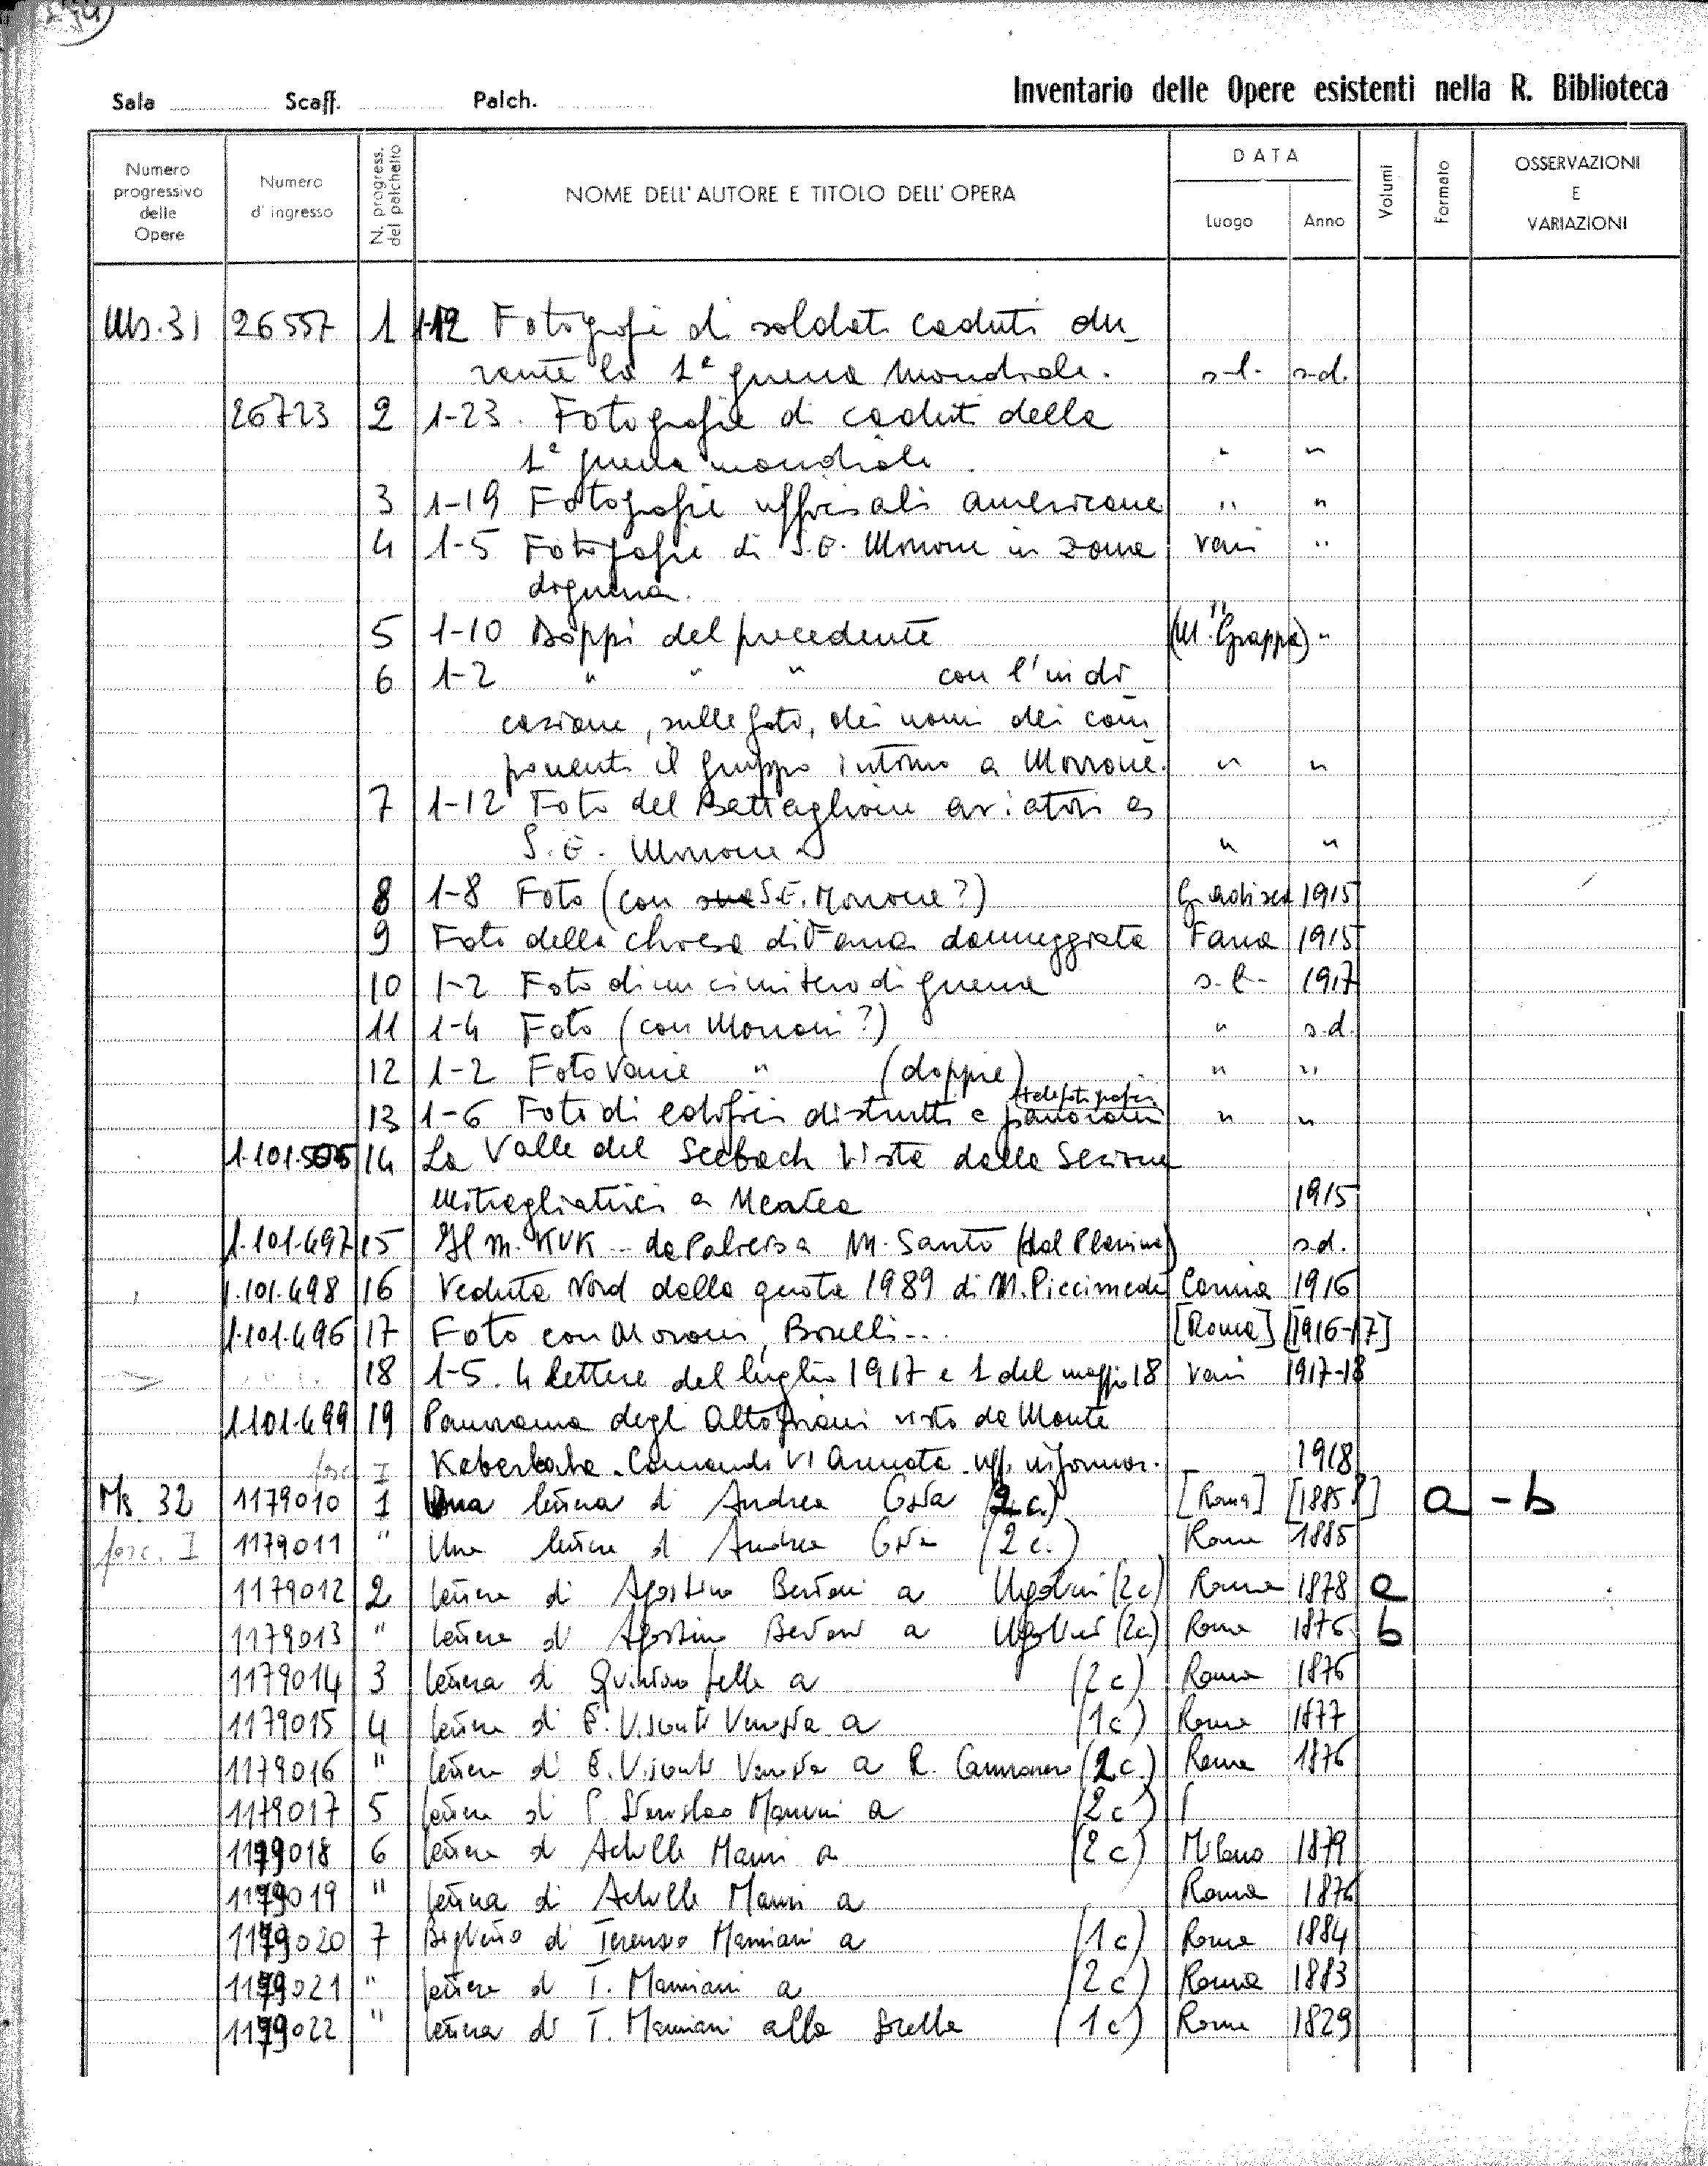 Sala Scaff. Palch. Inventario delle Opere esistenti nella R. Biblioteca
Numero progressivo delle Opere
Numero d'ingresso
N. progress. del palchetto
NOME DELL'AUTORE E TITOLO DELL'OPERA
DATA
Luogo Anno
Volumi
Formato
OSSERVAZIONI E VARIAZIONI
Ms. 31 26557 1 1-12 Fotografie di soldati caduti du-
rante la 1ª guerra mondiale. s.l. s.d.
26723 2 1-23. Fotografie di caduti della
1ª guerra mondiale. " "
3 1-19 Fotografie ufficiali americane " "
4 1-5 Fotografie di S.E. Morrone in zona vari "
di guerra.
5 1-10 Doppi del precedente (M. Grappa) "
6 1-2 " " " con l'indi-
cazione, sulle foto, dei nomi dei com-
ponenti il gruppo intorno a Morrone. " "
7 1-12 Foto del Battaglione aviatori e
S.E. Morrone " "
8 1-8 Foto (con S.E. Morrone?) Gradisca 1915
9 Foto della chiesa di Farra danneggiata Farra 1915
10 1-2 Foto di un cimitero di guerra s.l. 1917
11 1-4 Foto (con Morrone?) " s.d.
12 1-2 Foto varie " (doppie) " "
13 1-6 Foto di edifici distrutti e panorami telefotografie " "
1.101.505 14 La Valle del Seebach vista dalla Sezione
Mitragliatrici a 1915
1.101.497 15 Il m. KUK - da a M. Santo (dal Planina) s.d.
1.101.498 16 Veduta Nord dalla quota 1989 di M. Carnia 1916
1.101.496 17 Foto con Morrone, Borelli... [Roma] [1916-17]
18 1-5. 4 lettere del luglio 1917 e 1 del maggio 18 vari 1917-18
1.101.499 19 Panorama degli Altopiani visto da Monte
Kaberlaba. Comando VI Armata. uff. informaz. 1918
fasc. I
Ms. 32 1179010 1 Una lettera di Andrea Costa (2 c.) [Roma] [1885?] a - b
fasc. I 1179011 " Una lettera di Andrea Costa (2 c.) Roma 1885
1179012 2 lettera di Agostino Bertani a Ugolini (2c) Roma 1878 a
1179013 " lettera di Agostino Bertani a Ugolini (2c) Roma 1876 b
1179014 3 lettera di Quintino Sella a (2 c) Roma 1876
1179015 4 lettera di E. Visconti Venosta a (1c) Roma 1877
1179016 " lettera di E. Visconti Venosta a R. (2 c.) Roma 1876
1179017 5 lettera di P. Stanislao Mancini a (2 c)
1179018 6 lettera di Achille Mauri a (2 c) Milano 1879
1179019 " lettera di Achille Mauri a Roma 1876
1179020 7 Biglietto di Terenzio Mamiani a (1c) Roma 1884
1179021 " lettera di T. Mamiani a (2c) Roma 1883
1179022 " lettera di T. Mamiani alla (1c) Roma 1829